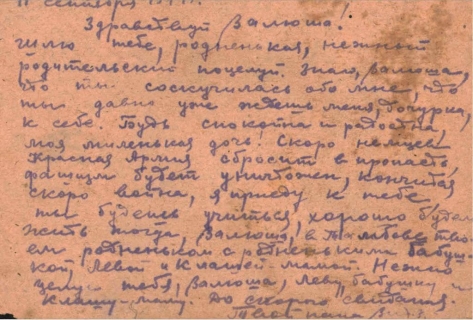 11 сентября
Здравствуй Залюша!
Шлю тебе, родненькая, нежный
родительский поцелуй. Знаю, Залюша,
что ты соскучилась обо мне, что
ты давно уже ждешь меня, дочурка,
к себе. Будь спокойна и радостна,
моя миленькая дочь! Скоро немцев
Красная Армия сбросит в пропасть,
фашизм будет уничтожен, кончится
скоро война, я приеду к тебе,
ты будешь учиться, хорошо будем
жить тогда, Залюша, в Тамбове тво-
ем родненьком с родненькими бабуш-
кой, Левой и Клашей мамой. Нежно
целую тебя, Залюша, Леву, бабушку и
Клашу-маму. До скорого свидания.
Твой папа